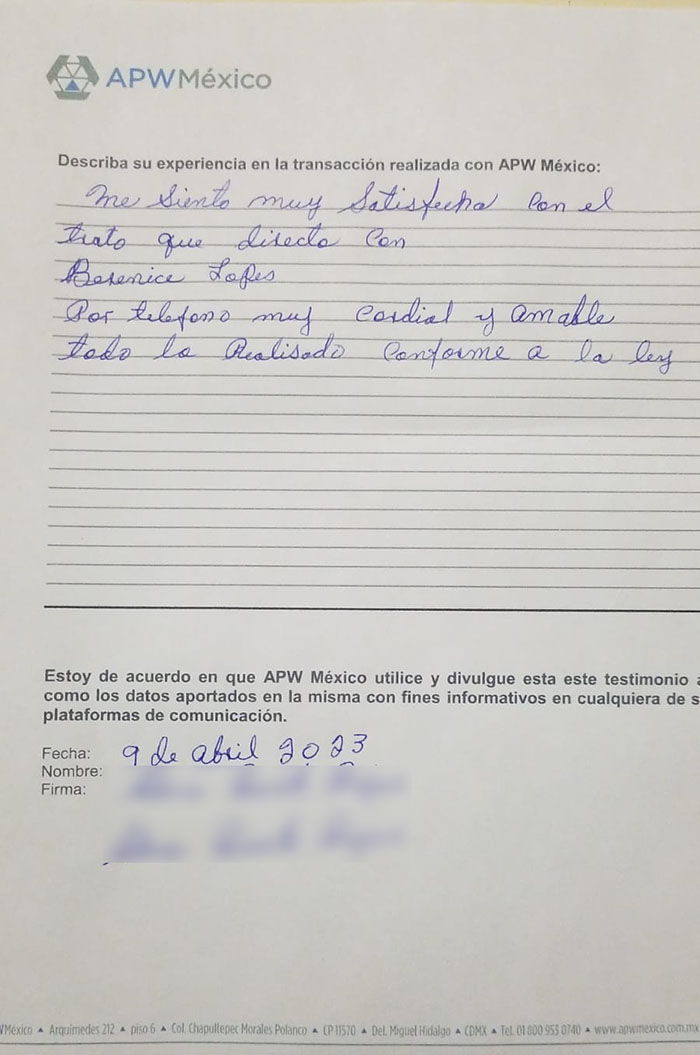 APWMéxico
Describa su experiencia en la transacción realizada con APW México:
Me siento muy Satisfecha Con el
trato que directo Con
Berenice Lopes
Por telefono muy Cordial y amable
todo lo Realisado Conforme a la ley
Estoy de acuerdo en que APW México utilice y divulgue esta este testimonio
como los datos aportados en la misma con fines informativos en cualquiera de
plataformas de comunicación.
Fecha: 9 de abril 2023
Nombre:
Firma:
México ▲ Arquímedes 212 ▲ piso 6 ▲ Col. Chapultepec Morales Polanco ▲ CP 11570 ▲ Del. Miguel Hidalgo ▲ CDMX ▲ Tel. 01 800 953 0740 ▲ www.apwmexico.com.mx